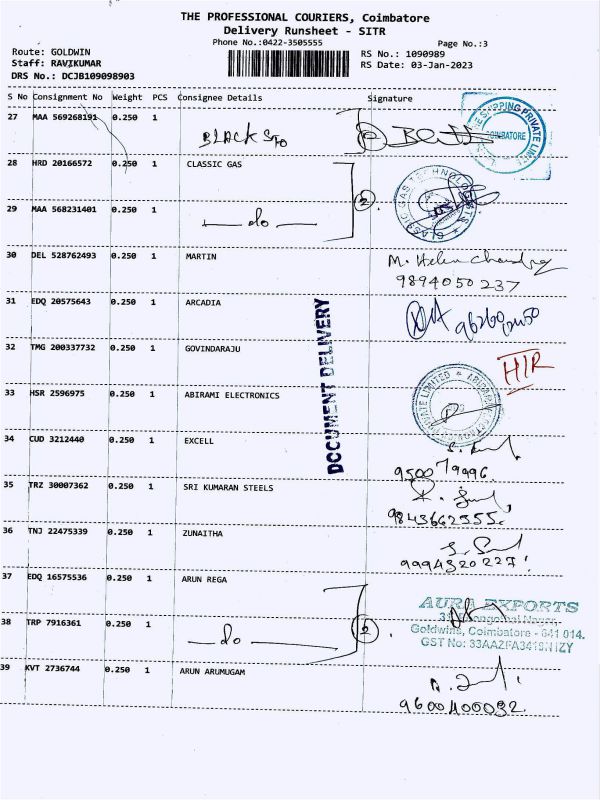 THE PROFESSIONAL COURIERS, Coimbatore
Delivery Runsheet - SITR
Phone No.:0422-3505555
Page No.:3
Route: GOLDWIN
RS No.: 1090989
Staff: RAVIKUMAR
RS Date: 03-Jan-2023
DRS No.: DCJB109098903
S No Consignment No Weight PCS Consignee Details Signature
27 MAA 569268191 0.250 1
COIMBATORE
28 HRD 20166572 0.250 1 CLASSIC GAS
2
CLASSIC GAS TECHNOLOGISTS
29 MAA 568231401 0.250 1 do
30 DEL 528762493 0.250 1 MARTIN
9894050237
31 EDQ 20575643 0.250 1 ARCADIA
DOCUMENT DELIVERY
32 TMG 200337732 0.250 1 GOVINDARAJU
33 HSR 2596975 0.250 1 ABIRAMI ELECTRONICS
PRIVATE LIMITED
34 CUD 3212440 0.250 1 EXCELL
950079996
35 TRZ 30007362 0.250 1 SRI KUMARAN STEELS
9843662555
36 TNJ 22475339 0.250 1 ZUNAITHA
9994320227
37 EDQ 16575536 0.250 1 ARUN REGA
AURA EXPORTS
38 TRP 7916361 0.250 1 do
2
Goldwins, Coimbatore - 641 014.
GST No:
39 KVT 2736744 0.250 1 ARUN ARUMUGAM
9600400032